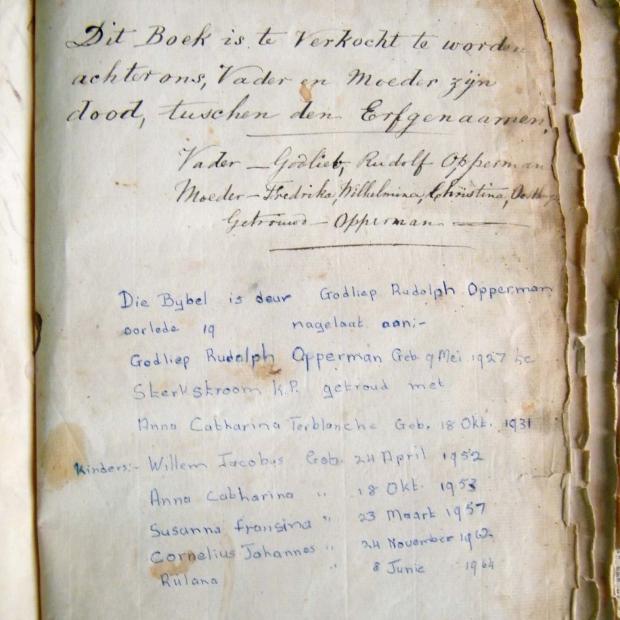 Dit Boek is te Verkocht te worden
achter ons, Vader en Moeder zijn
dood, tuschen den Erfgenaamen,
Vader – Godlieb, Rudolf Opperman
Moeder – Fredrika, Wilhelmina, Christina,
Getrouwd – Opperman
Die Bybel is deur Godliep Rudolph Opperman
oorlede 19 nagelaat aan:-
Godliep Rudolph Opperman Geb 9 Mei 1927 te
Sterkstroom K.P. getroud met
Anna Catharina Terblanche Geb. 18 Okt. 1931
Kinders:- Willem Jacobus Geb. 24 April 1952
Anna Catharina " 18 Okt. 1953
Susanna Fransina " 23 Maart 1957
Cornelius Johannes " 24 November 1962
Riana " 8 Junie 1964